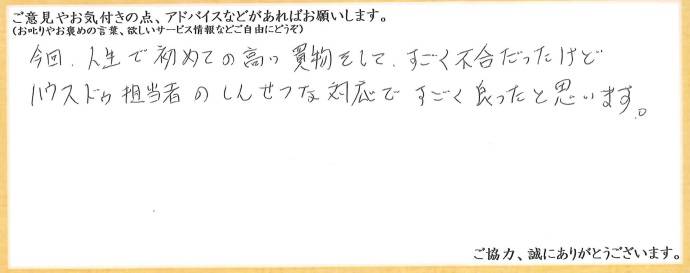 ご意見やお気付きの点、アドバイスなどがあればお願いします。
(お叱りやお褒めの言葉、欲しいサービス情報などご自由にどうぞ)
今回、人生で初めての高い買物をして、すごく不合だったけど
ハウスドゥ担当者のしんせつな対応ですごく良ったと思います。
ご協力、誠にありがとうございます。